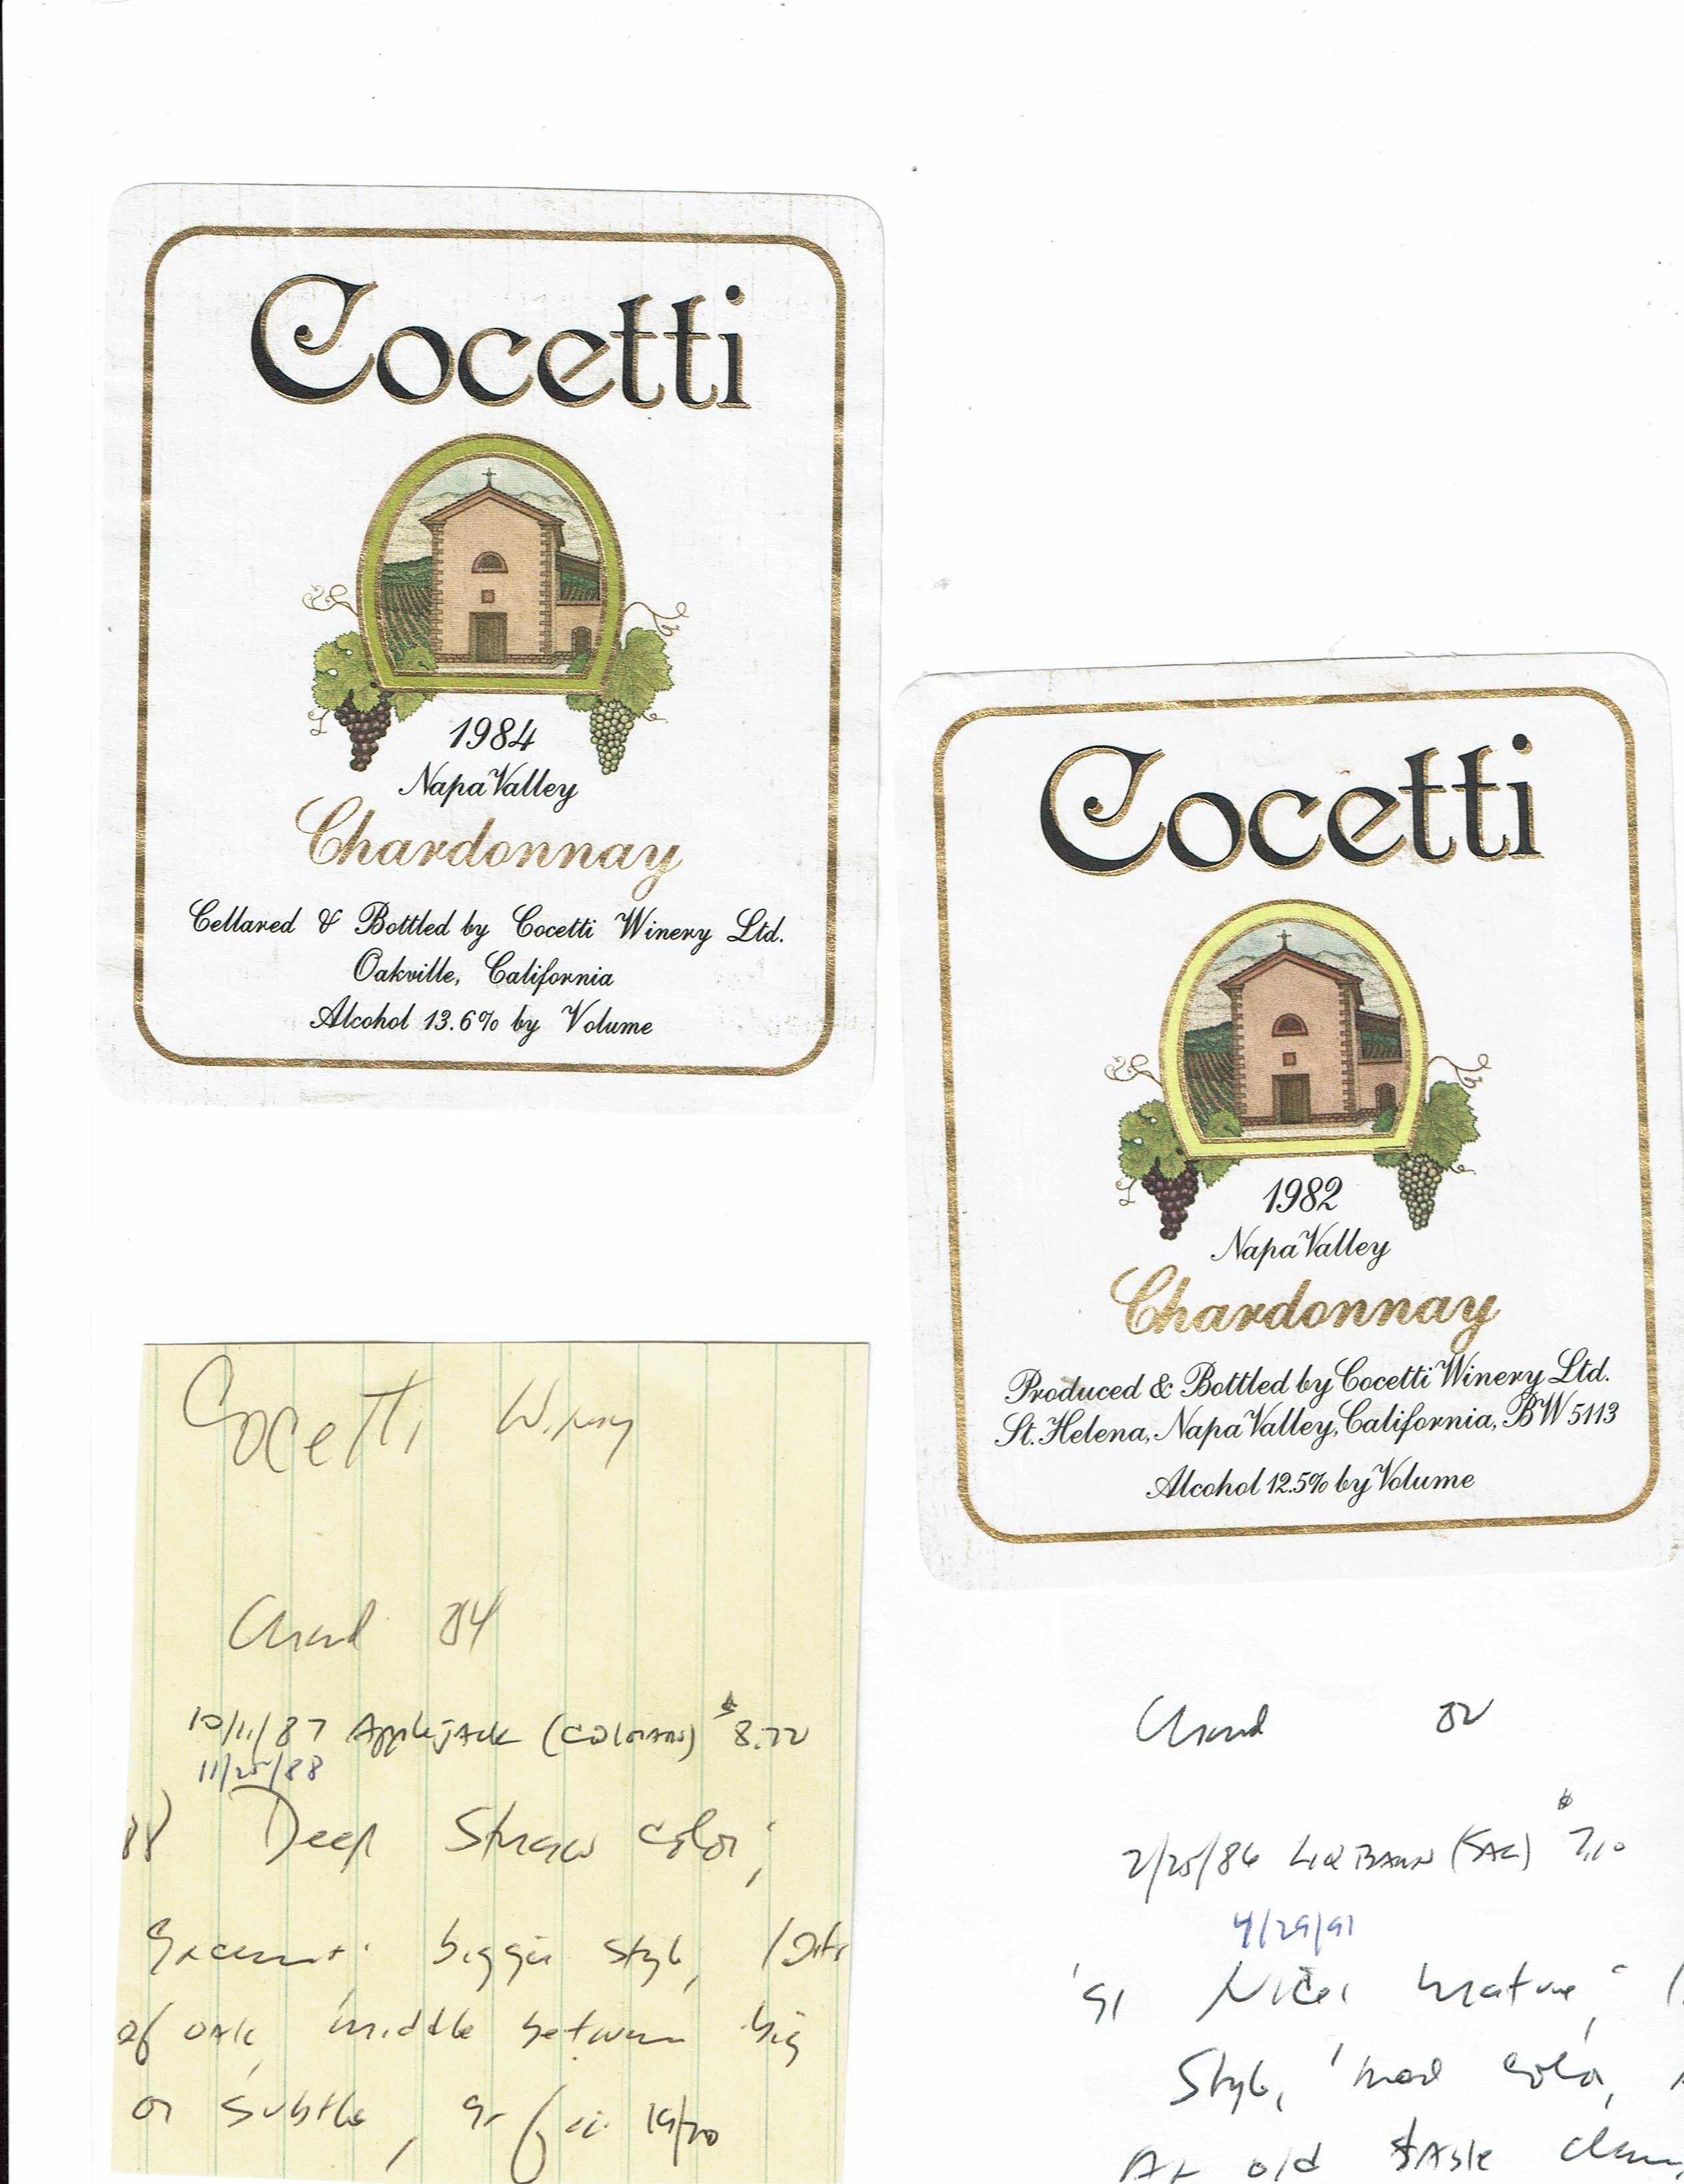 Cocetti
1984
Napa Valley
Chardonnay
Cellared & Bottled by Cocetti Winery Ltd.
Oakville, California
Alcohol 13.6% by Volume
Cocetti
1982
Napa Valley
Chardonnay
Produced & Bottled by Cocetti Winery Ltd.
St. Helena, Napa Valley, California, BW 5113
Alcohol 12.5% by Volume
Cocetti Winery
Chard 84
10/11/87 Applejack (Colorado) $8.72
11/25/88
88) Deep Straw color;
bigger style,
of oak, middle between big
or subtle, 19/20
Chard 82
2/25/86 Liq Barn (Sac) $7.10
4/29/91
'91 Nice, mature,
Style, color,
old